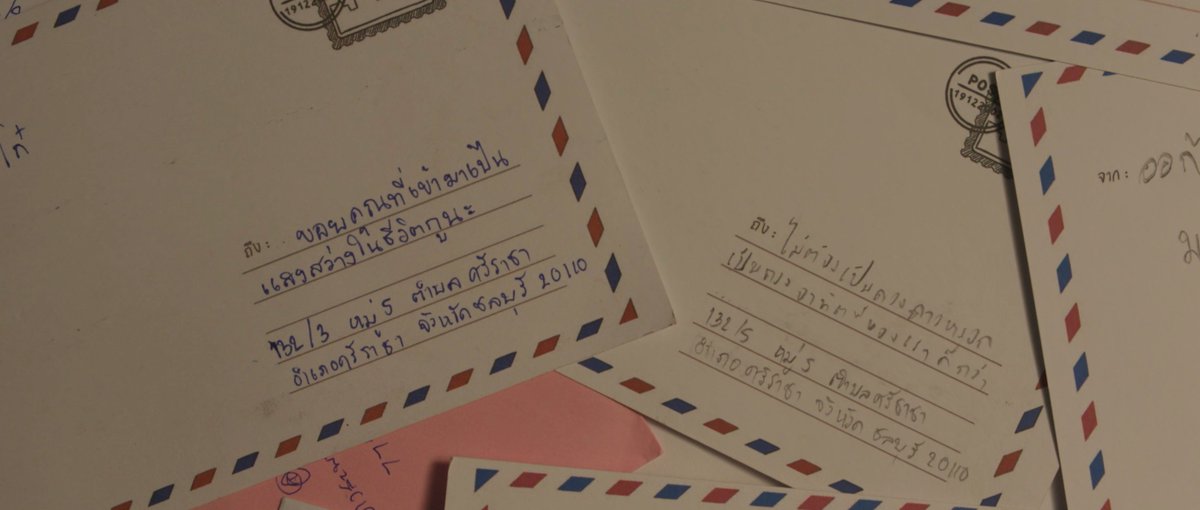 ถึง: ขอบคุณที่เข้ามาเป็น
แสงสว่างในชีวิตกูนะ
132/3 หมู่ 5 ตำบล ศรีราชา
อำเภอศรีราชา จังหวัด ชลบุรี 20110
POS
1912
ถึง: ไม่ต้องเป็นดวงดาวหรอก
เป็นดวงอาทิตย์ของเราดีกว่า
132/5 หมู่ 5 ตำบลศรีราชา
อำเภอศรีราชา จังหวัด ชลบุรี 20110
จาก: